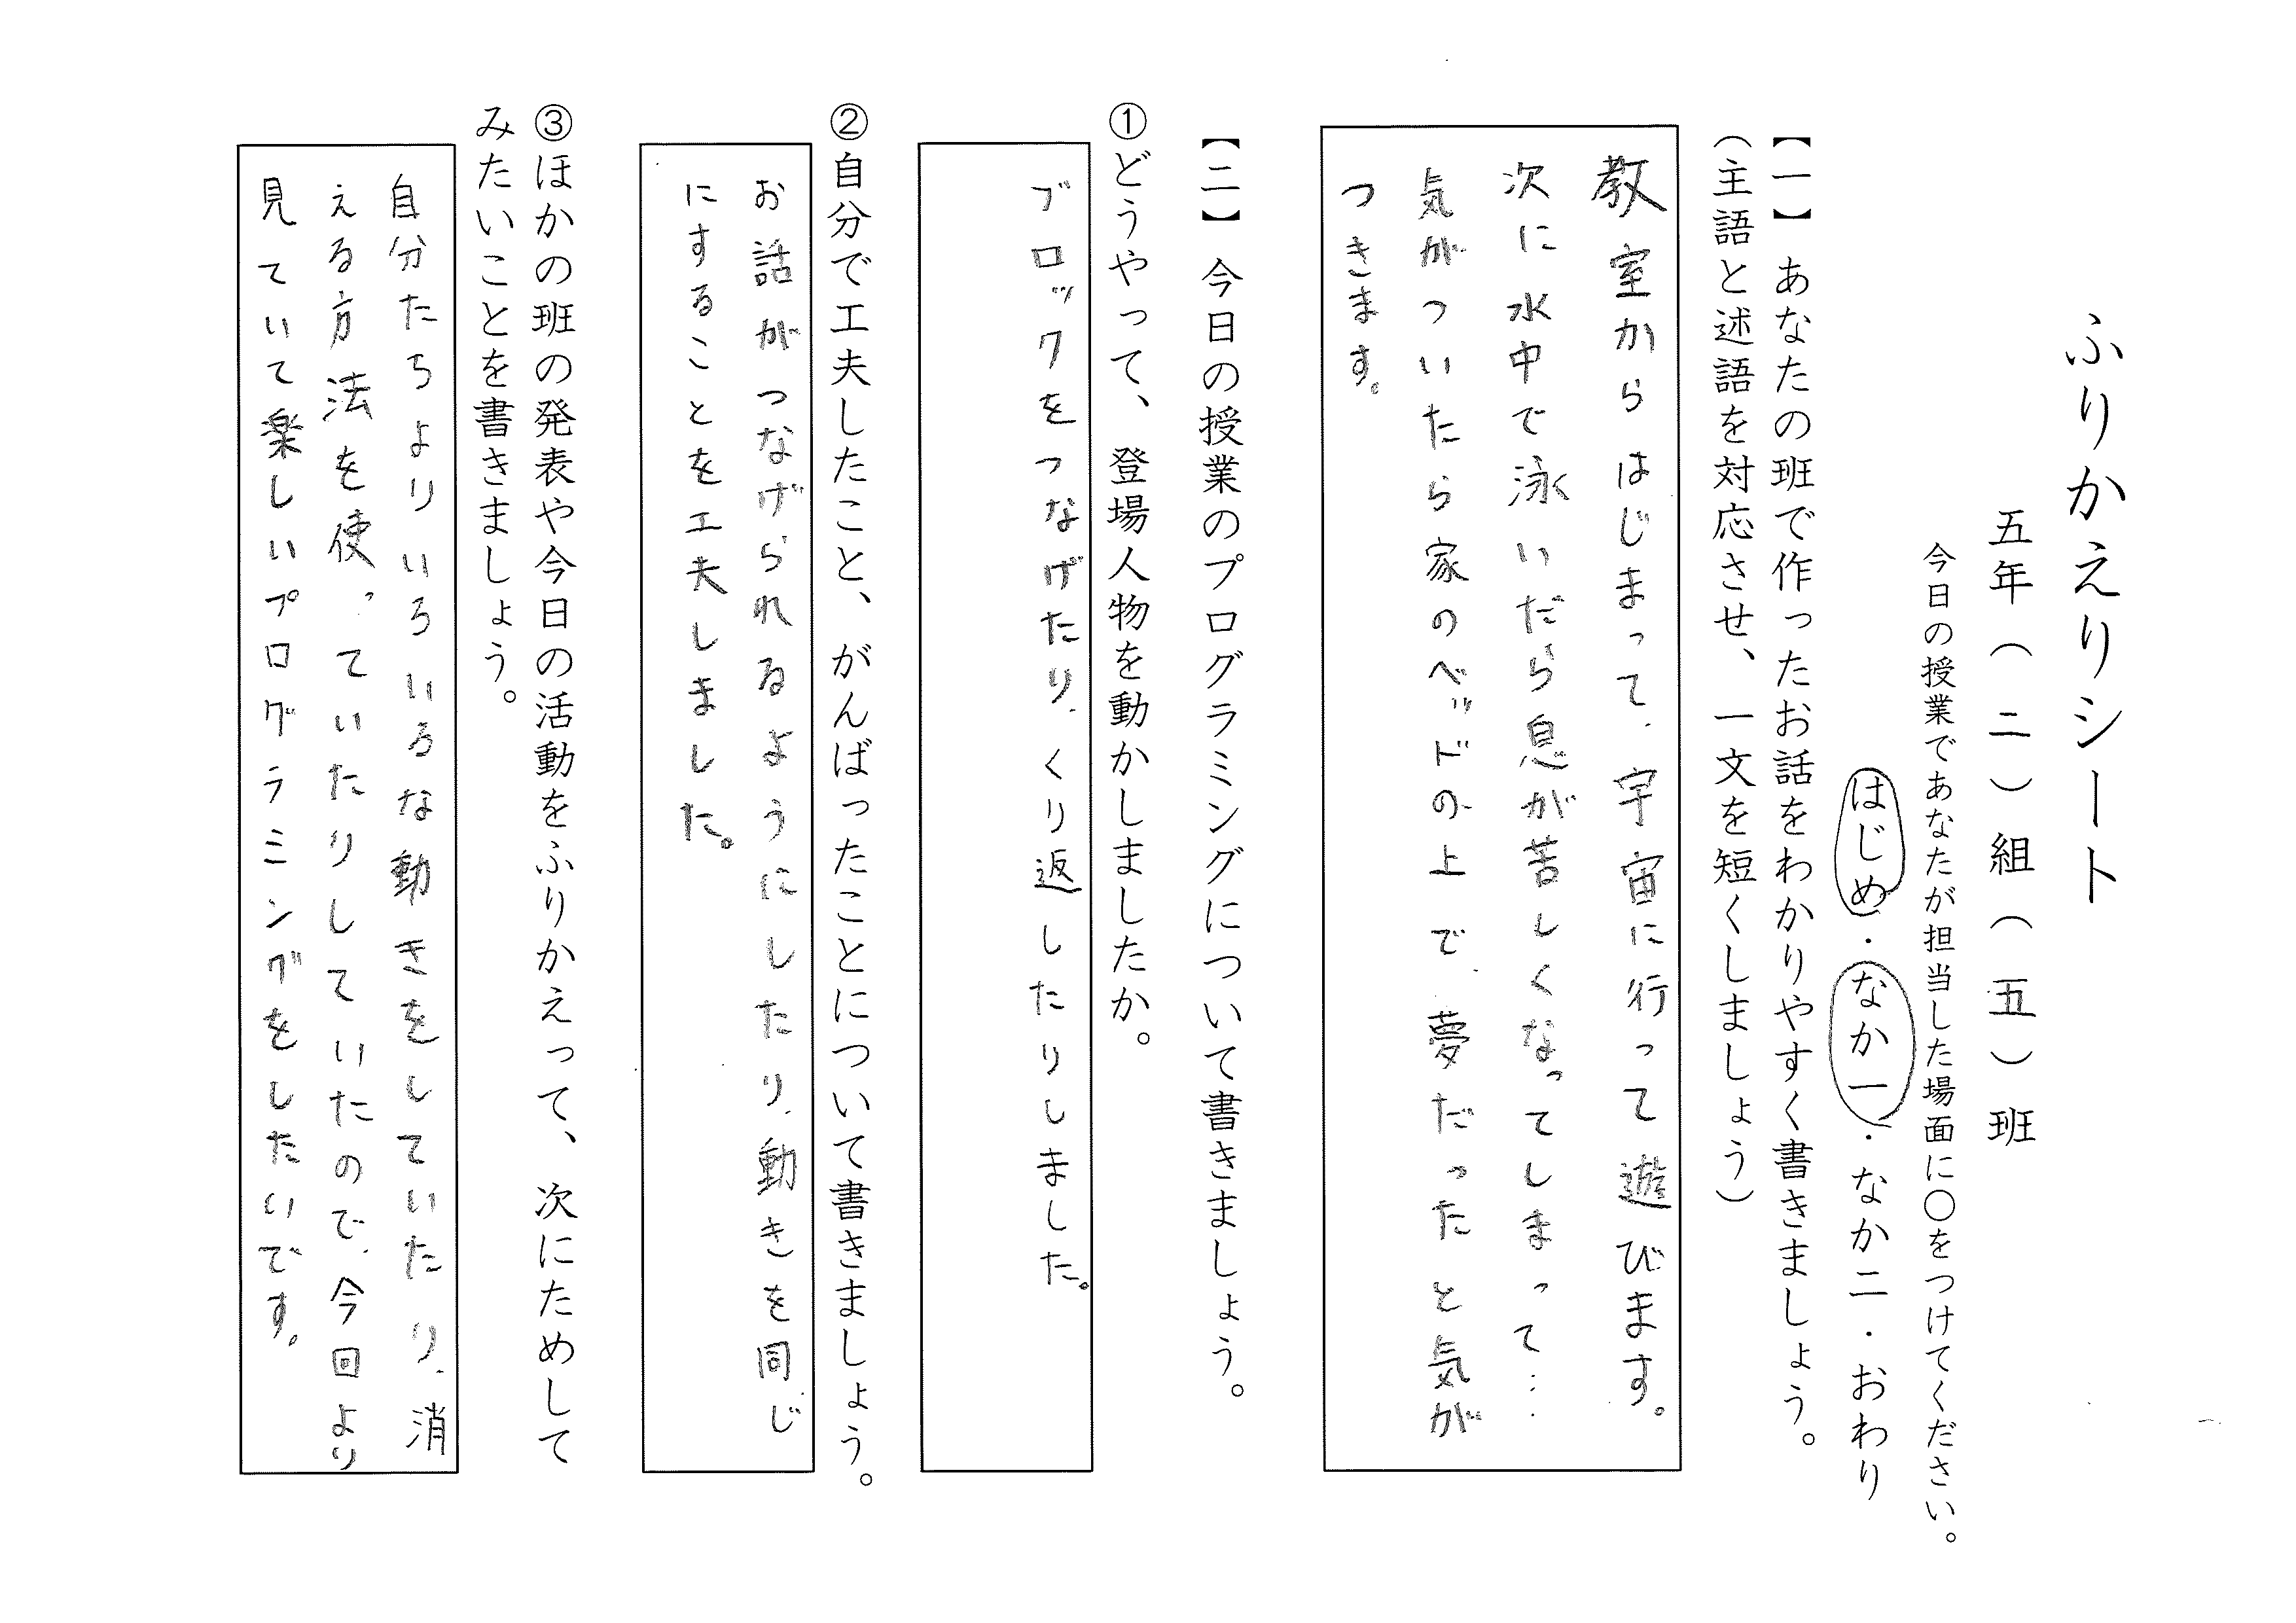 ふりかえりシート
五年（二）組（五）班
今日の授業であなたが担当した場面に〇をつけてください。
はじめ・なか一・なか二・おわり
【一】あなたの班で作ったお話をわかりやすく書きましょう。
（主語と述語を対応させ、一文を短くしましょう）
教室からはじまって、宇宙に行って遊びます。
次に水中で泳いだら息が苦しくなってしまって…
気がついたら家のベッドの上で、夢だったと気が
つきます。
【二】今日の授業のプログラミングについて書きましょう。
①どうやって、登場人物を動かしましたか。
ブロックをつなげたり、くり返したりしました。
②自分で工夫したこと、がんばったことについて書きましょう。
お話がつなげられるようにしたり、動きを同じ
にすることを工夫しました。
③ほかの班の発表や今日の活動をふりかえって、次にためして
みたいことを書きましょう。
自分たちよりいろいろな動きをしていたり、消
える方法を使っていたりしていたので、今回より
見ていて楽しいプログラミングをしたいです。